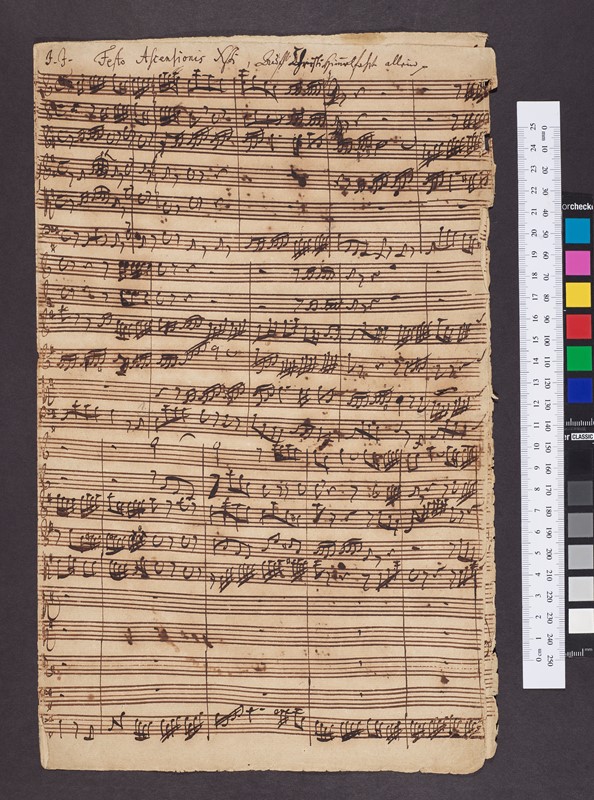 J. J. Festo Ascensionis Xsti, Auff Christi Himmelfahrt allein
orchecke
CLASSIC
mm
0 mm 10 20 30 40 50 60 70 80 90 100 110 120 130 140 150 160 170 180 190 200 210 220 230 240 250
25 24 23 22 21 20 19 18 17 16 15 14 13 12 11 10 9 8 7 6 5 4 3 2 1 0